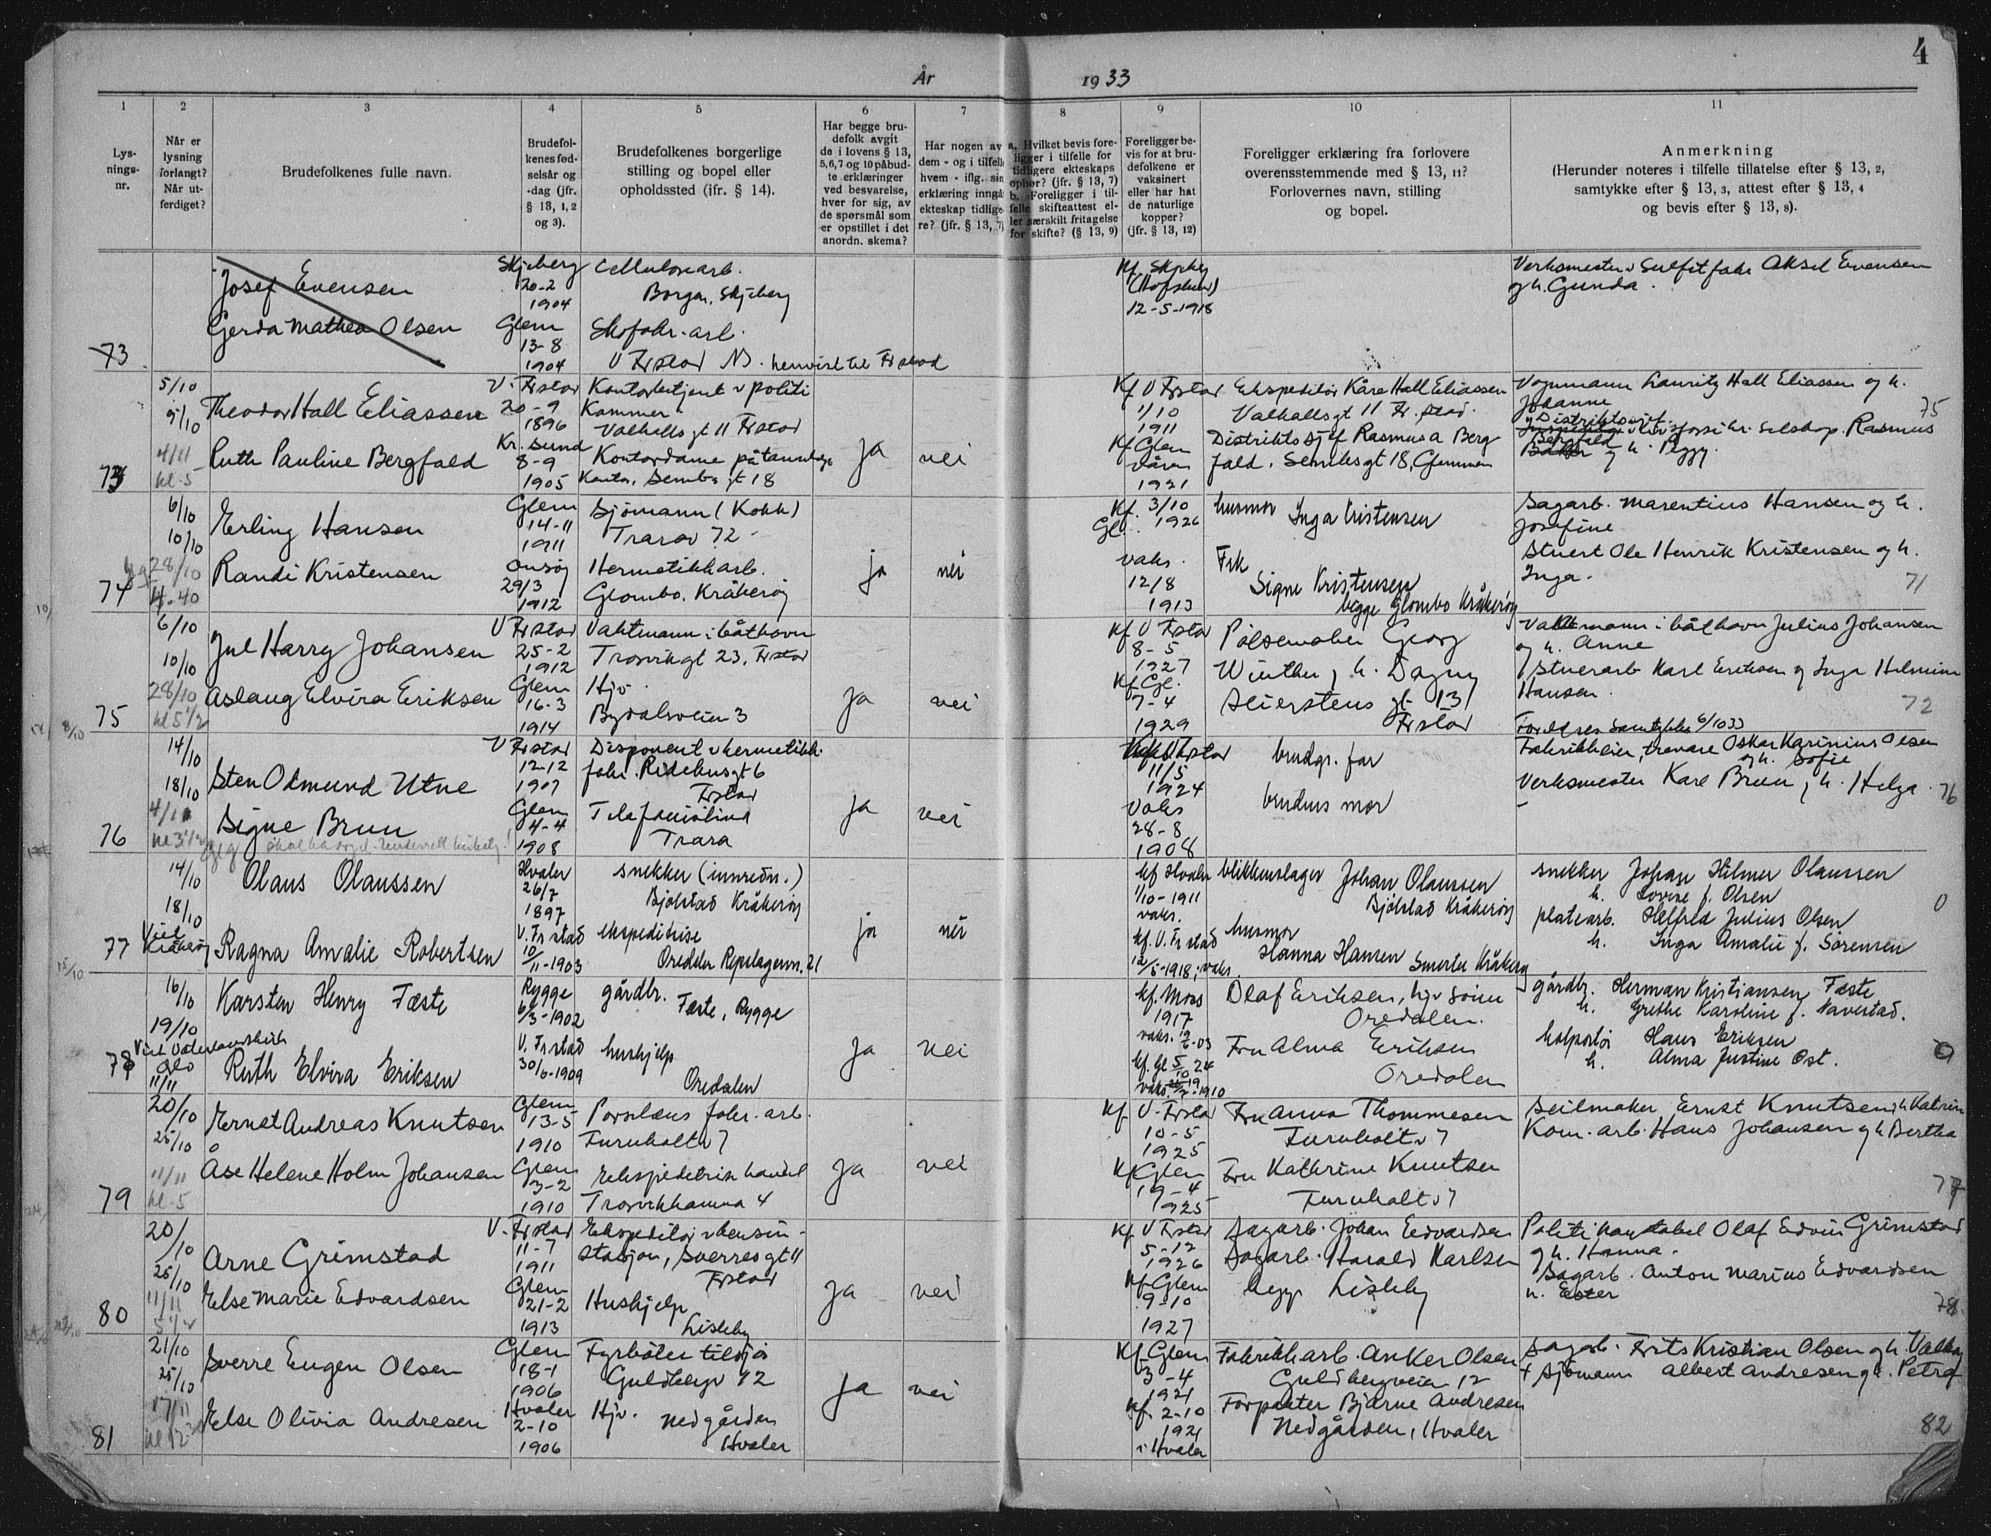 År 1933
4
1 2 3 4 5 6 7 8 9 10 11
Lys-
nings-
nr.
Når er
lysning
forlangt?
Når ut-
ferdiget?
Brudefolkenes fulle navn.
Brudefol-
kenes fød-
selsår og
-dag (jfr.
§ 13, 1, 2
og 3).
Brudefolkenes borgerlige
stilling og bopel eller
opholdssted (ifr. § 14).
Har begge bru-
defolk avgit
de i lovens § 13,
5,6,7 og 10 påbud-
te erklæringer
ved besvarelse,
hver for sig, av
de spørsmål som
er opstillet i det
anordn. skema?
Har nogen av
dem - og i tilfelle
hvem - iflg. sin
erklæring inngå
ekteskap tidlige-
re? (jfr. § 13, 7)
a. Hvilket bevis fore-
ligger i tilfelle for
tidligere ekteskaps
ophør? (jfr. § 13, 7)
b. Foreligger i til-
felle skifteattest el-
ler særskilt fritagelse
for skifte? (§ 13, 9)
Foreligger be-
vis for at bru-
defolkene er
vaksinert
eller har hat
de naturlige
kopper?
(jfr. § 13, 12)
Foreligger erklæring fra forlovere
overensstemmende med § 13, 11?
Forlovernes navn, stilling
og bopel.
Anmerkning
(Herunder noteres i tilfelle tillatelse efter § 13, 2,
samtykke efter § 13, 3, attest efter § 13, 4
og bevis efter § 13, 8).
73
Josef Evensen
Skjeberg
20-2
1904
Cellulosearb.
Borgen, Skjeberg
Kf. Skjeberg
12-5-1918
Verksmester v Sulfitfabr Aksel Evensen
og h. Gunda.
Gerda Mathea Olsen
Glem
13-8
1904
Skofabr. arb.
V Frstad N. henvist til Frstad
5/10
9/10
Theodor Hall Eliassen
V. Frstad
20-9
1896
Kontorbetjent v politi
Kammer
Valhallsgt 11 Frstad
Kf V Frstad
1/10
1911
Ekspeditør Kåre Hall Eliassen
Valhallsgt 11 Fr.stad.
Vognmann Lauritz Hall Eliassen og h.
Johanne
75
4/11
kl 5
Ruth Pauline Bergfald
Kr. Sund
8-9
1905
Kontordame på tannlege
Kontor, Sembs gt 18
ja
nei
Kf Glem
våren
1921
Distriktssjef Rasmus A Berg
fald. Sembsgt 18, Glemmen
Distriktssjef
Rasmus
Bergfald og h. Peggy.
74
6/10
10/10
Erling Hansen
Glem
14-11
1911
Sjømann (Kokk)
Trarav 72
Kf. 3/10
Gl. 1926
husmor Inga Kristensen
Sagarb. Marentius Hansen og h.
Josefine
28/10
4-40
Randi Kristensen
Onsøy
29/3
1912
Hermetikkarb.
Glombo, Kråkerøy
ja
nei
vaks.
12/8
1913
Frk
Signe Kristensen
begge Glombo Kråkerøy
Stuert Ole Henrik Kristensen og h.
Inga.
71
75
6/10
10/10
Jul Harry Johansen
V Frstad
25-2
1912
Vaktmann i båthavn
Trosvikgt 23, Frstad
Kf V Frstad
8-5
1927
Pølsemaker Georg
Winther, h. Dagny
Vaktmann i båthavn Julius Johansen
og h. Anne
28/10
kl 5 1/2
Aslaug Elvira Eriksen
Glem
16-3
1914
Hjv.
Bydalsveien 3
ja
nei
Kf Gl.
7-4
1929
Seierstens gt 13
Frstad
Stuerarb Karl Eriksen og Inga Helmine
Hansen.
72
Foreldres Samtykke 6/10 33
76
14/10
18/10
Sten Osmund Utne
V Frstad
12-12
1907
Disponent v hermetikk.
fabr. Ridehusgt 6
Frstad
11/5
1924
brudgs. far
Fabrikkeier, travare Oskar Karinius Olsen
og h. Sofie
4/11
Signe Bruu
Glem
4-4
1908
Telefonistinne
Trara
ja
nei
Vaks
28-8
1908
brudens mor
Verksmester Karl Bruu, h. Helga
76
77
14/10
18/10
Olaus Olaussen
Hvaler
26/7
1897
snekker (innredn.)
Bjølstad Kråkerøy
kf Hvaler
1/10-1911
vaks.
blikkenslager Johan Olaussen
Bjølstad Kråkerøy
snekker Johan Hilmer Olaussen
h. Lovise f. Olsen
0
Viet
Kråkerøy
Ragna Amalie Robertsen
V. Frstad
10/11-1903
ekspeditrise
Oredalen Repslagerm. 21
ja
nei
kf. V. Frstad
12/5-1918; vaks.
husmor
Hanna Hansen Smertu Kråkerøy
platearb. Helfred Julius Olsen
h. Inga Amalie f. Sørensen
78
16/10
19/10
Karsten Henry Fæste
Rygge
6/3-1902
gårdbr.
Fæste, Rygge
kf. Moss
1917
vaks. 19/6-03
Olaf Eriksen, hjv Soien
Oredalen.
gårdbr. Herman Kristiansen Fæste
h. Grethe Karoline f. Navestad.
Oslo
11/11
Ruth Elvira Eriksen
V. Frstad
30/6-1909
hushjelp
Oredalen
ja
nei
kf. Gl 5/10 24
Fru Alma Eriksen
Oredalen
kolportør Hans Eriksen
h. Alma Justine Ost.
79
20/10
25/10
Ernst Andreas Knutsen
Glem
13-5
1910
Porselæns fabr. arb.
Furuholtv 7
Kf V. Frstad
10-5
1925
Fru Anna Thommesen
Furuholtv 7
Seilmaker Ernst Knutsen h Katrin
Kom. arb. Hans Johansen og h Bertha
11/11
kl. 5
Åse Helene Holm Johansen
Glem
3-2
1910
Ekspeditrise handel
Trosvikhamna 4
ja
nei
Kf Glem
19-4
1925
Fru Kathrine Knutsen
Furuholtv 7
77
80
20/10
25/10
Arne Grimstad
V. Frstad
11-7
1911
Ekspeditør v bensin-
stasjon, Sverresgt 11
Frstad
Kf V Frstad
5-12
1926
Sagarb. Johan Edvardsen
Sagarb. Harald Karlsen
Politikonstabel Olaf Edvin Grimstad
og h. Hanna.
11/11
5 1/2
Else Marie Edvardsen
Glem
21-2
1913
Hushjelp
Lisleby
ja
nei
Kf Glem
9-10
1927
begge Lisleby
Sagarb. Anton Marius Edvardsen
h. Ester
78.
81
21/10
25/10
Sverre Eugen Olsen
Glem
18-1
1906
Fyrbøter tilsjøs
Guldbergv 12
Kf. Glem
3-4
1921
Fabrikkarb. Anker Olsen
Guldbergveien 12
Sagarb. Frits Kristian Olsen og h. Valborg
17/11
Else Olivia Andresen
Hvaler
2-10
1906
Hjv. Nedgården
Hvaler
ja
nei
Kf. 2-10
1921
i Hvaler
Forpakter Bjarne Andresen
Nedgården, Hvaler
+ Sjømann Albert Andresen og h. Petra
82